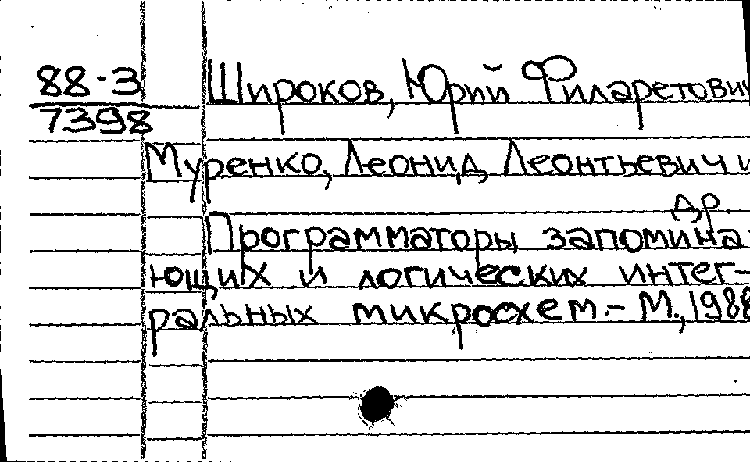 88-3
7398
Широков, Юрий Филаретович
Муренко, Леонид Леонтьевич и
др.
Программаторы запомина-
ющих и логических интег-
ральных микросхем.- М., 1988